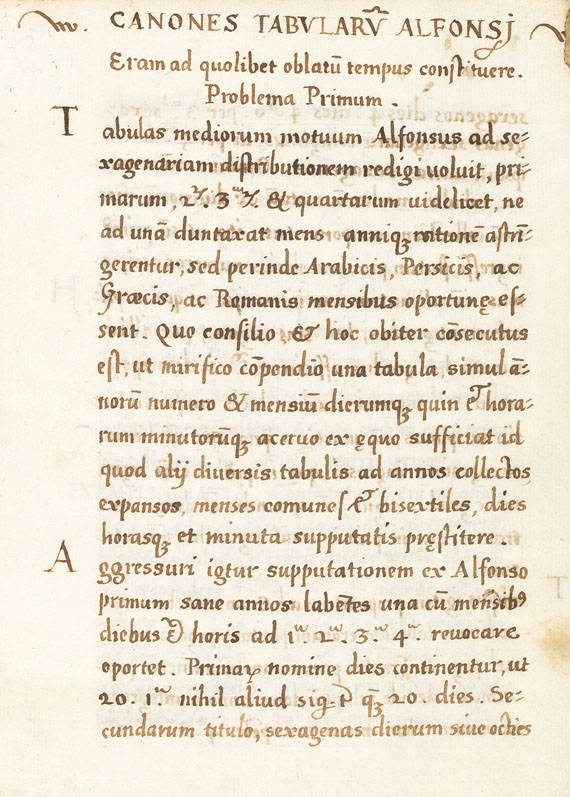 CANONES TABVLARV̄ ALFONSJ
Eram ad quolibet oblatū tempus constituere.
Problema Primum.
Tabulas mediorum motuum Alfonsus ad se-
xagenariam distributionem redigi voluit, pri-
marum, 2ꝝ. 3ꝝ. & quartarum uidelicet, ne
ad unā duntaxat mens anniqꝫ rationē astrī-
gerentur, sed perinde Arabicis, Persicis, ac
Græcis, ac Romanis mensibus oportunę es-
sent. Quo consilio & hoc obiter cōsecutus
est, ut mirifico cōpendio una tabula simul ā-
norū numero & mensiū dierumqꝫ quin & hora-
rum minutorūqꝫ aceruo ex ęquo sufficiat id
quod alij diversis tabulis ad annos collectos
expansos, menses comunes & bisextiles, dies
horasqꝫ et minuta supputatis pręstitere.
Aggressuri igtur supputationem ex Alfonso
primum sane annos labētes una cū mensibꝰ
diebus & horis ad 1ᵃˢ. 2ᵃˢ. 3ᵃˢ. 4ᵃˢ. revocare
oportet. Primaꝝ nomine dies continentur, ut
20. 1ᵃˢ nihil aliud sig.t qꝫ 20. dies. Se-
cundarum titulo, sexagenas dierum siue octies